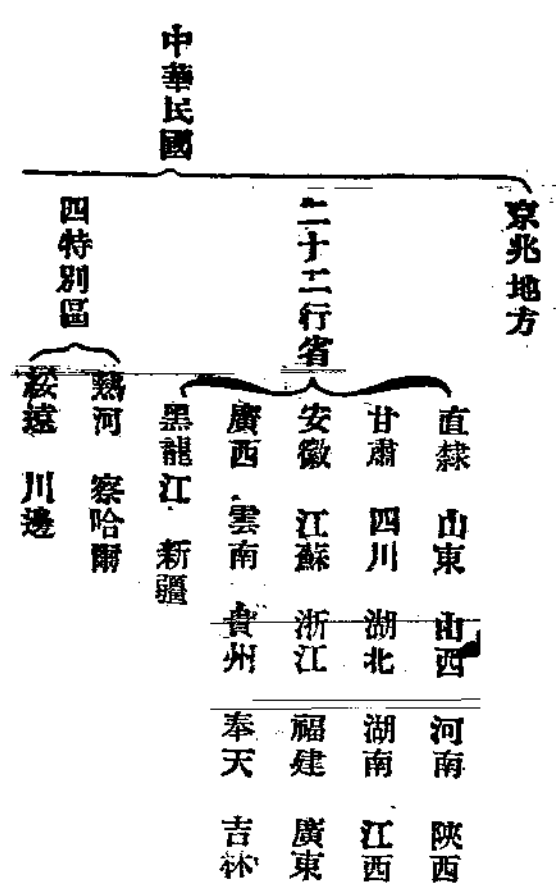 中華民國
京兆地方
二十二行省
直隸 山東 山西 河南 陝西
甘肅 四川 湖北 湖南 江西
安徽 江蘇 浙江 福建 廣東
廣西 雲南 貴州 奉天 吉林
黑龍江 新疆
四特別區
熱河 察哈爾
綏遠 川邊